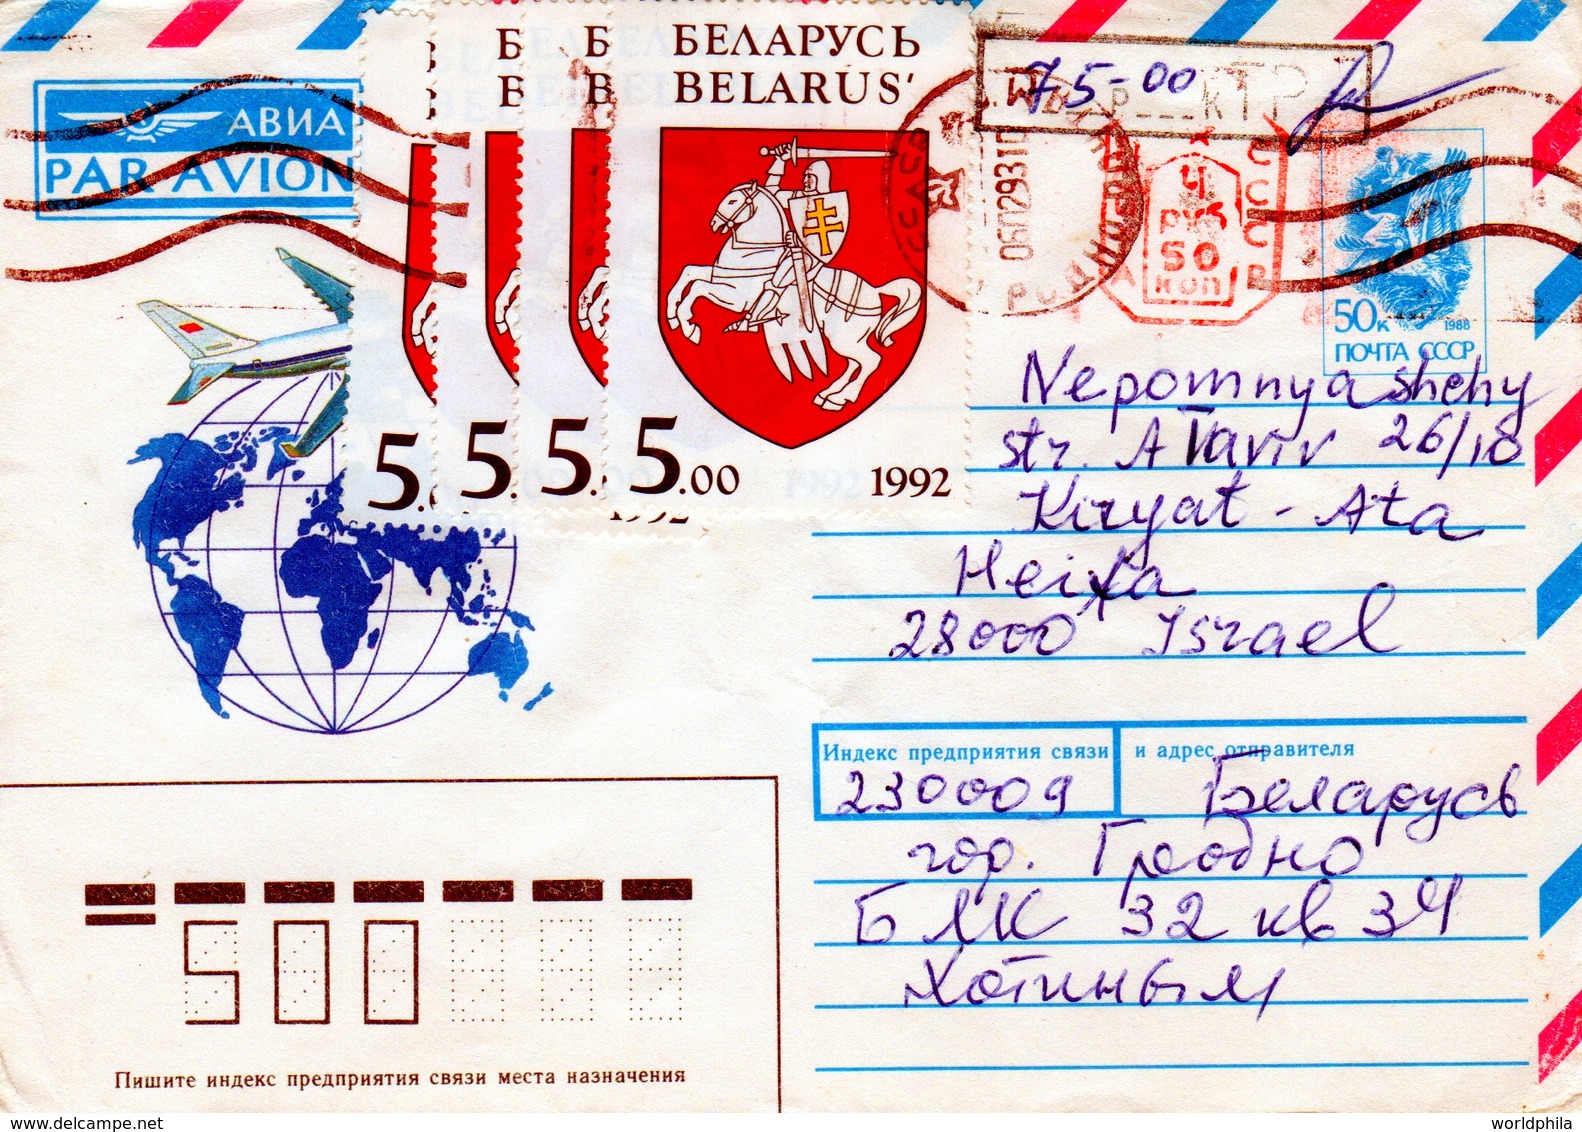 АВИА
PAR AVION
Б
Б
БЕЛАРУСЬ
B
B
BELARUS'
5.
5.
5.
5.00
1992
1992
75-00
р. к ТР
4
руб
50
коп
СССР
50к
1988
ПОЧТА СССР
Nepomnyashchy
str. ATariv 26/10
Kiryat - Ata
Heifa
28000 Israel
Индекс предприятия связи и адрес отправителя
230009 Беларусь
гор. Гродно
БЛК 32 кв 34
500
Пишите индекс предприятия связи места назначения
worldphila